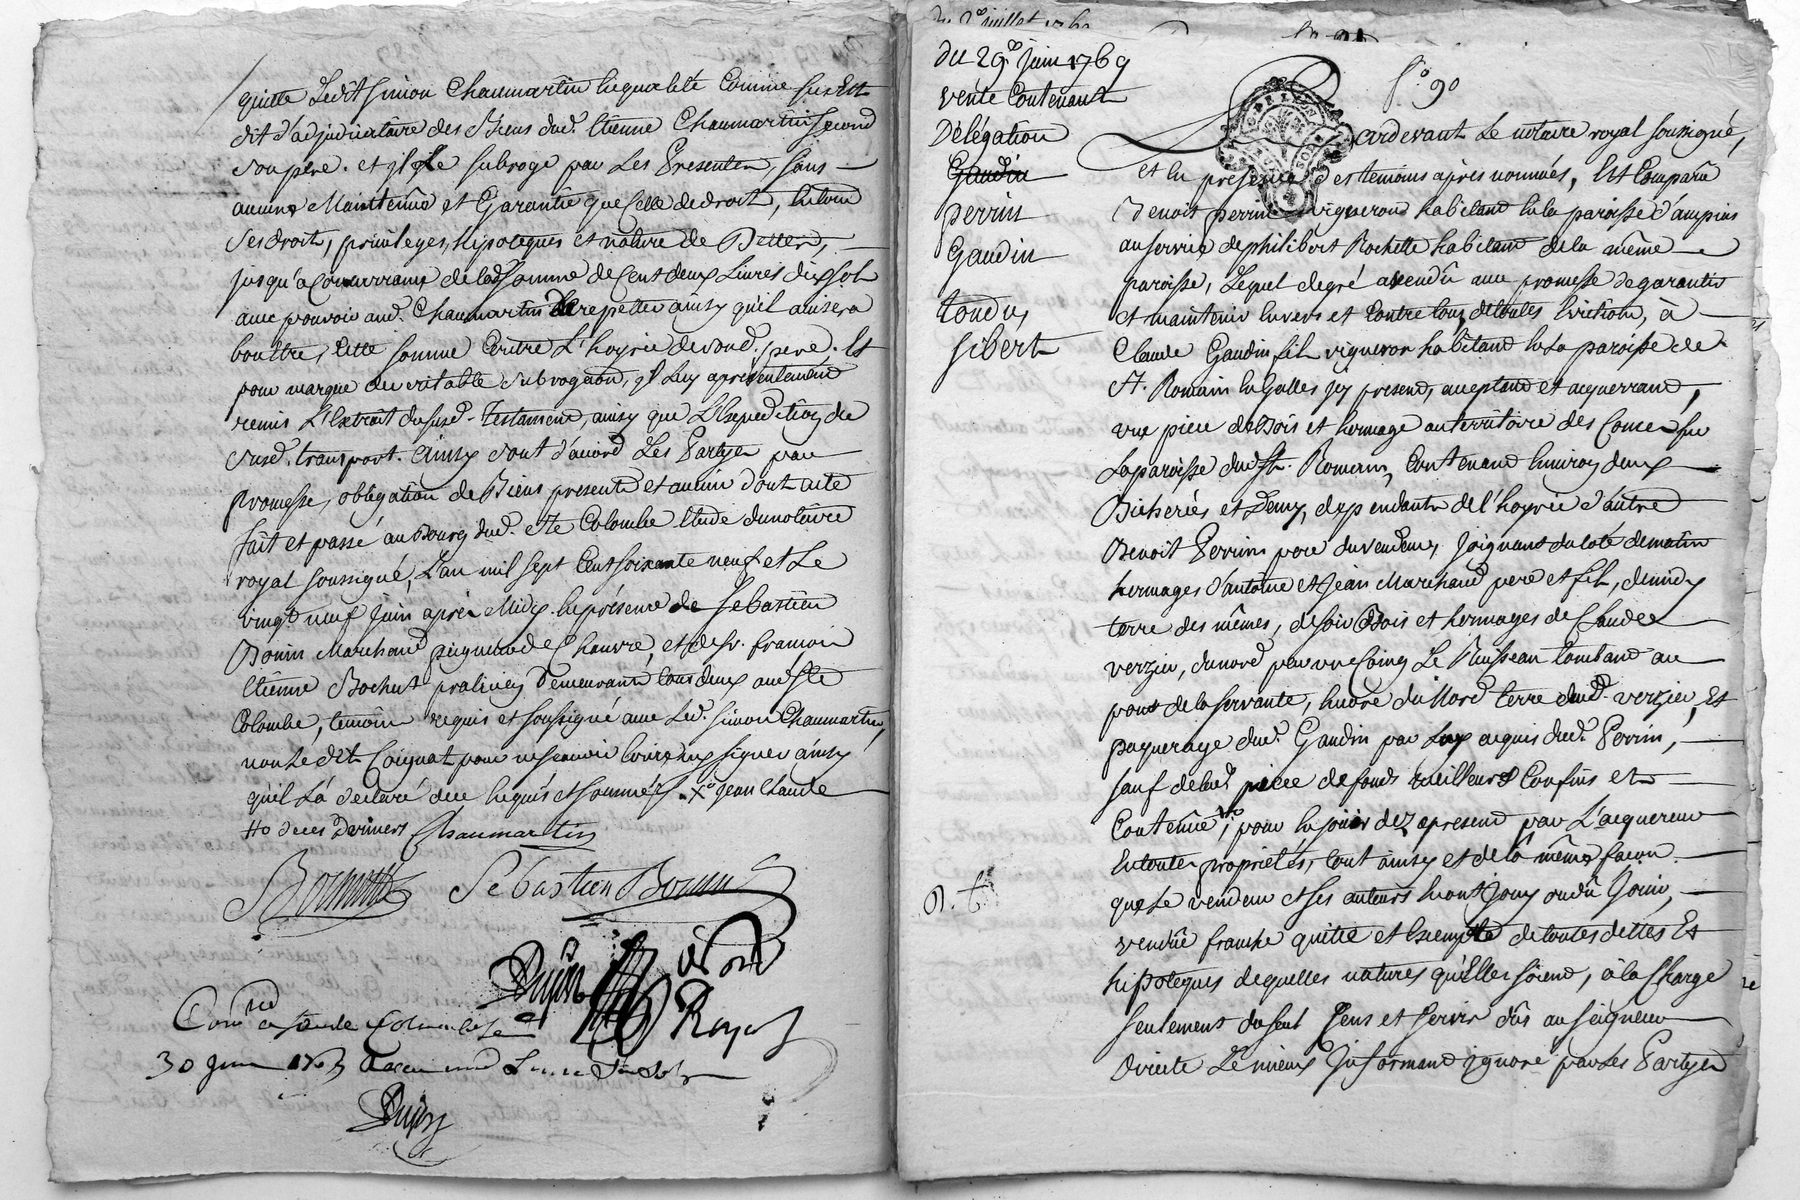 quitte Ledit Simon Chaumartin En qualité Comme Sus Est
dit d'adjudicataire des Biens dud. Etienne Chaumartin Second
Son père. et il Le Subroge par Les Presentes, Sans
aucune Maintenüe et Garantie que Celle de droit, En tous
Ses droits, privileges, hipoteques et nature de Dettes,
jusqu'a Concurrance de lad. Somme de Cent deux Livres dix sols
avec pouvoir aud. Chaumartin de repetter ainsy qu'il avisera
bon Etre, Cette Somme Contre L'hoyrie de Sond. pere. Et
pour marque de veritable Subrogaõn, il Luy a présentement
remis L'Extrait du susd. Testament, ainsy que L'Expedition du
Susd. transport. Ainsy Sont d'accord Les Partyes par
Promesse, obligation de Biens presents et avenir dont acte
fait et passé au Bourg dud. Ste Colombe Etude du notaire
royal Soussigné, L'an mil Sept Cent Soixante neuf et Le
vingt neuf Juin après Midy. En présence de Sebastien
Bonin Marchand peigneur de Chanvre, et de Sr. françois
Etienne Bochut praticien Demeurants tous deux aud. Ste
Colombe, temoins requis et Soussigné avec Led. Simon Chaumartin,
non Ledit Coignat pour ne Scavoir Ecrire ny Signer ainsy
qu'il L'a declaré de ce Enquis et Sommé. Xo Jean Claude
Ho deces Derniers Chaumartin
Bochutt Sebastien Bonin
Dujin
no.re Royal
Con.lé a Sainte Colombe le
30 Juin 1769
Dujin
Du 29e. Juin 1769
vente Contenant
Délégation
Gaudin
perrin
Gaudin
tondus
Sibert
fo. 90
Pardevant Le notaire royal Soussigné,
et En presence des temoins après nommés, Est Comparu
Benoit perrin vigneron habitant En la paroisse d'ampuis
au Service de philibert Rochette habitant de la même
paroisse, Lequel de gré a vendû avec promesse de garantir
et maintenir Envers et Contre tous de toutes Evictions, à
Claude Gaudin fils vigneron habitant En La paroisse de
St. Romain En Galles icy present, acceptant et acquerrant,
une piece de Bois et hermage au territoire des Combes sur
La paroisse dud. St. Romain, Contenant Environ deux
Bicherées et Demy, dependante de l'hoyrie d'autre
Benoit Perrin pere du vendeur, Joignant du Coté de matin
hermages d'antoine et Jean Marchand pere et fils, de midy
terre des mêmes, de Soir Bois et hermages de Claude
verzieu, du nord par un Coing Le Ruisseau tombant au
pont de la Servante, Encore du Nord terre dud. verzieu, Et
paquerage dud. Gaudin par Luy acquis dud. Perrin,
Sauf de lad. piece de fonds meilleurs Confins et
Contenüe, pour En jouir dez apresent par L'acquereur
En toutes proprietés, tout ainsy et de la même façon
que Le vendeur et Ses auteurs En ont Jouy ou dû Jouir,
vendüe franche quitte et Exempte de toutes dettes Et
hipoteques de quelles natures qu'Elles Soient, à la Charge
Seulement du Seul Cens et Servis dûs au Seigneur
Directe Le mieux Informant ignoré par Les Partyes